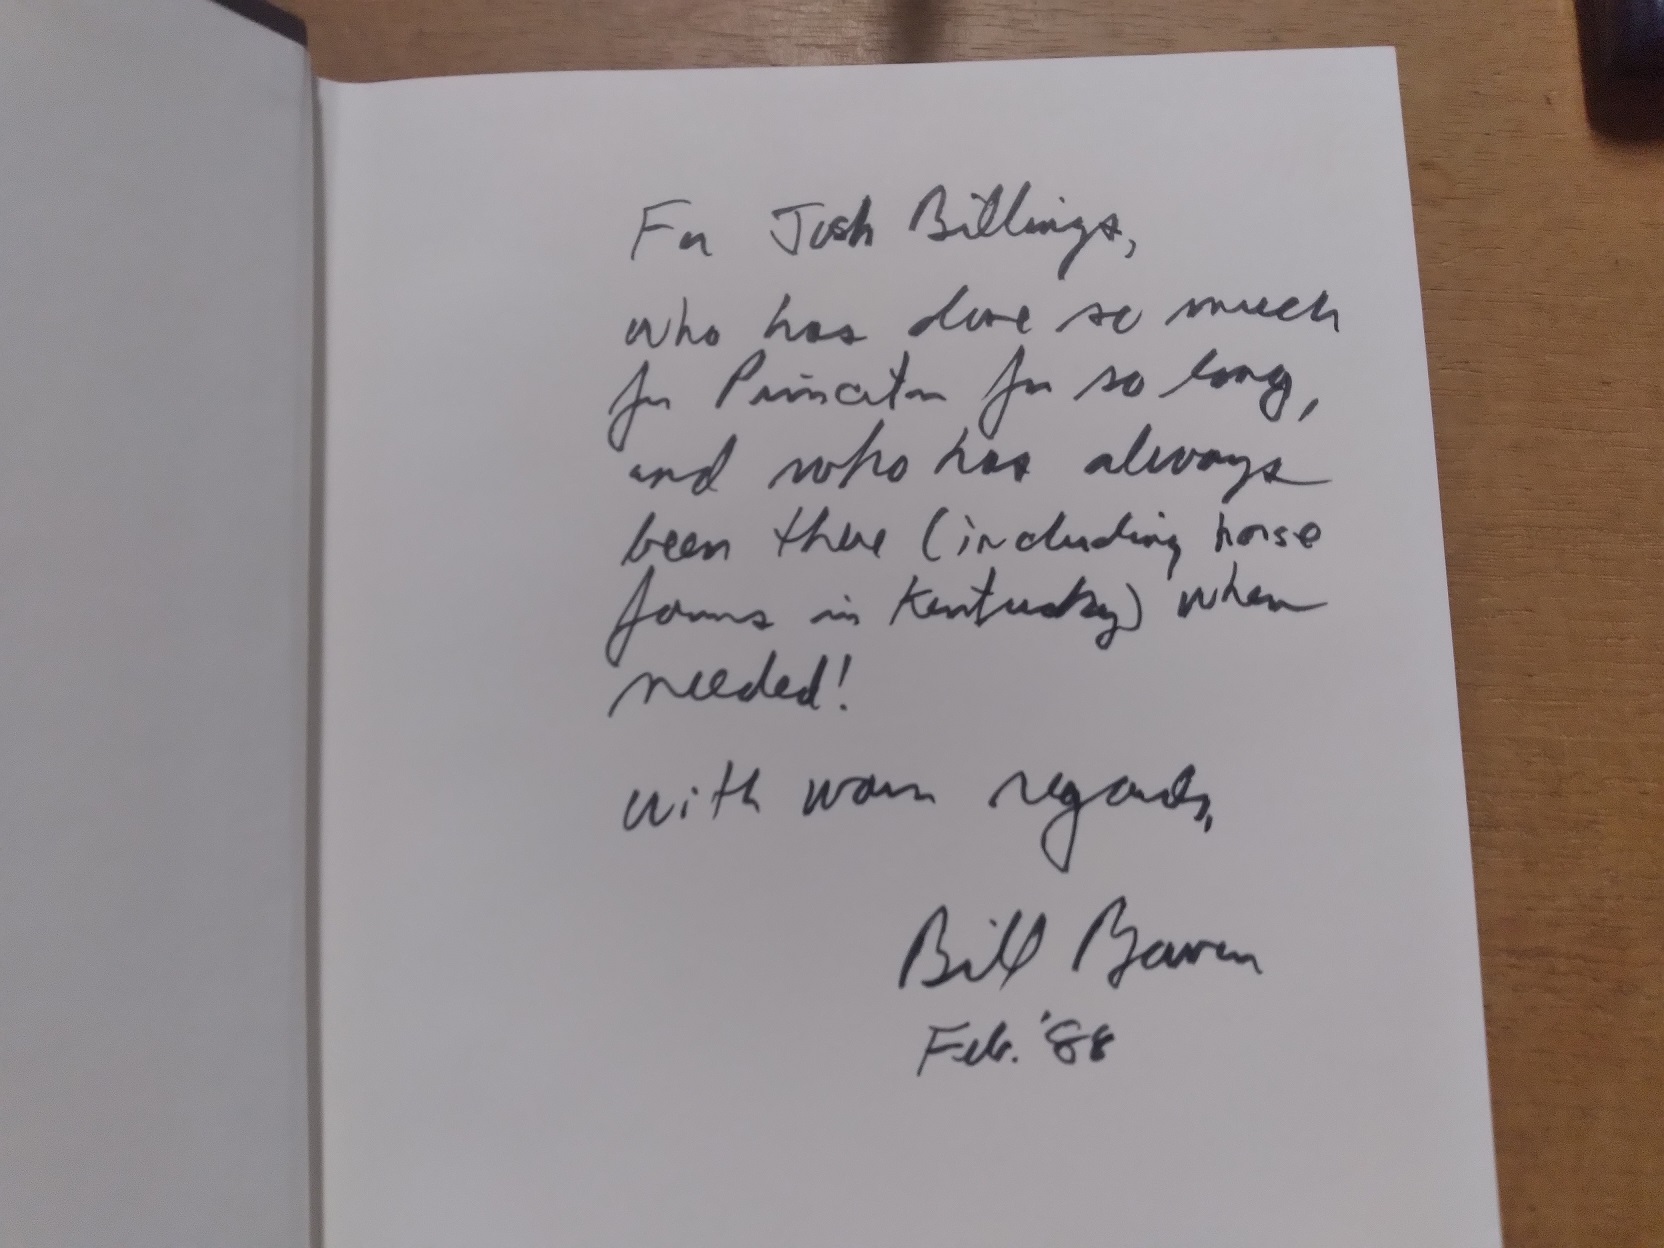 For Josh Billings,
who has done so much
for Princeton for so long,
and who has always
been there (including horse
farms in Kentucky) when
needed!
with warm regards,
Bill Bowen
Feb. '88